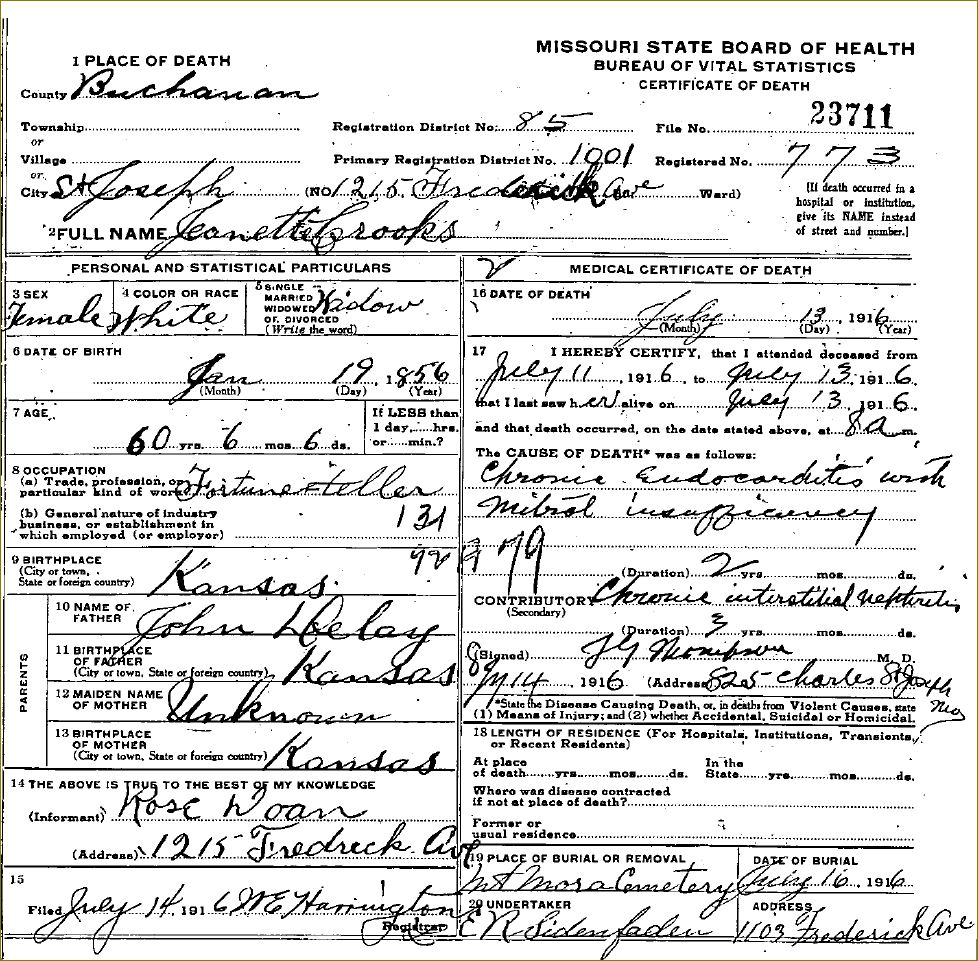 MISSOURI STATE BOARD OF HEALTH
BUREAU OF VITAL STATISTICS
CERTIFICATE OF DEATH
1 PLACE OF DEATH
County Buchanan
23711
Township Registration District No. 85 File No.
or
Village Primary Registration District No. 1001 Registered No. 773
or
City St Joseph (NO 1215 Frederick Ave Ward)
[If death occurred in a
hospital or institution,
give its NAME instead
of street and number.]
2 FULL NAME Jeanette Crooks
PERSONAL AND STATISTICAL PARTICULARS
3 SEX
Female
4 COLOR OR RACE
White
5 SINGLE
MARRIED
WIDOWED
OR DIVORCED
(Write the word)
Widow
6 DATE OF BIRTH
Jan 19, 1856
(Month) (Day) (Year)
7 AGE
60 yrs. 6 mos. 6 ds.
If LESS than
1 day,....hrs.
or.....min.?
8 OCCUPATION
(a) Trade, profession, or
particular kind of work Fortune teller
(b) General nature of industry
business, or establishment in
which employed (or employer)
131
9 BIRTHPLACE
(City or town,
State or foreign country) Kansas
PARENTS
10 NAME OF
FATHER John Delay
11 BIRTHPLACE
OF FATHER
(City or town, State or foreign country) Kansas
12 MAIDEN NAME
OF MOTHER Unknown
13 BIRTHPLACE
OF MOTHER
(City or town, State or foreign country) Kansas
14 THE ABOVE IS TRUE TO THE BEST OF MY KNOWLEDGE
(Informant) Rose Doan
(Address) 1215 Fredreck Ave
15
Filed July 14 1916 WE Harrington
Registrar
MEDICAL CERTIFICATE OF DEATH
16 DATE OF DEATH
July 13, 1916
(Month) (Day) (Year)
17 I HEREBY CERTIFY, that I attended deceased from
July 11, 1916, to July 13, 1916.
that I last saw her alive on July 13, 1916.
and that death occurred, on the date stated above, at 8a m.
The CAUSE OF DEATH* was as follows:
Chronic Endocarditis with
Mitral insufficiency
79
(Duration) 2 yrs. mos. ds.
CONTRIBUTORY Chronic interstitial nephritis
(Secondary)
(Duration) 3 yrs. mos. ds.
(Signed) M. D.
14 1916 (Address) 825 Charles St Joseph
Mo
*State the Disease Causing Death, or, in deaths from Violent Causes, state
(1) Means of Injury; and (2) whether Accidental, Suicidal or Homicidal.
18 LENGTH OF RESIDENCE (For Hospitals, Institutions, Transients,
or Recent Residents)
At place In the
of death.......yrs.......mos.......ds. State.......yrs.......mos.......ds.
Where was disease contracted
if not at place of death?
Former or
usual residence
19 PLACE OF BURIAL OR REMOVAL
Mt Mora Cemetery
DATE OF BURIAL
July 16, 1916
20 UNDERTAKER
E R Sidenfaden
ADDRESS
1103 Frederick Ave